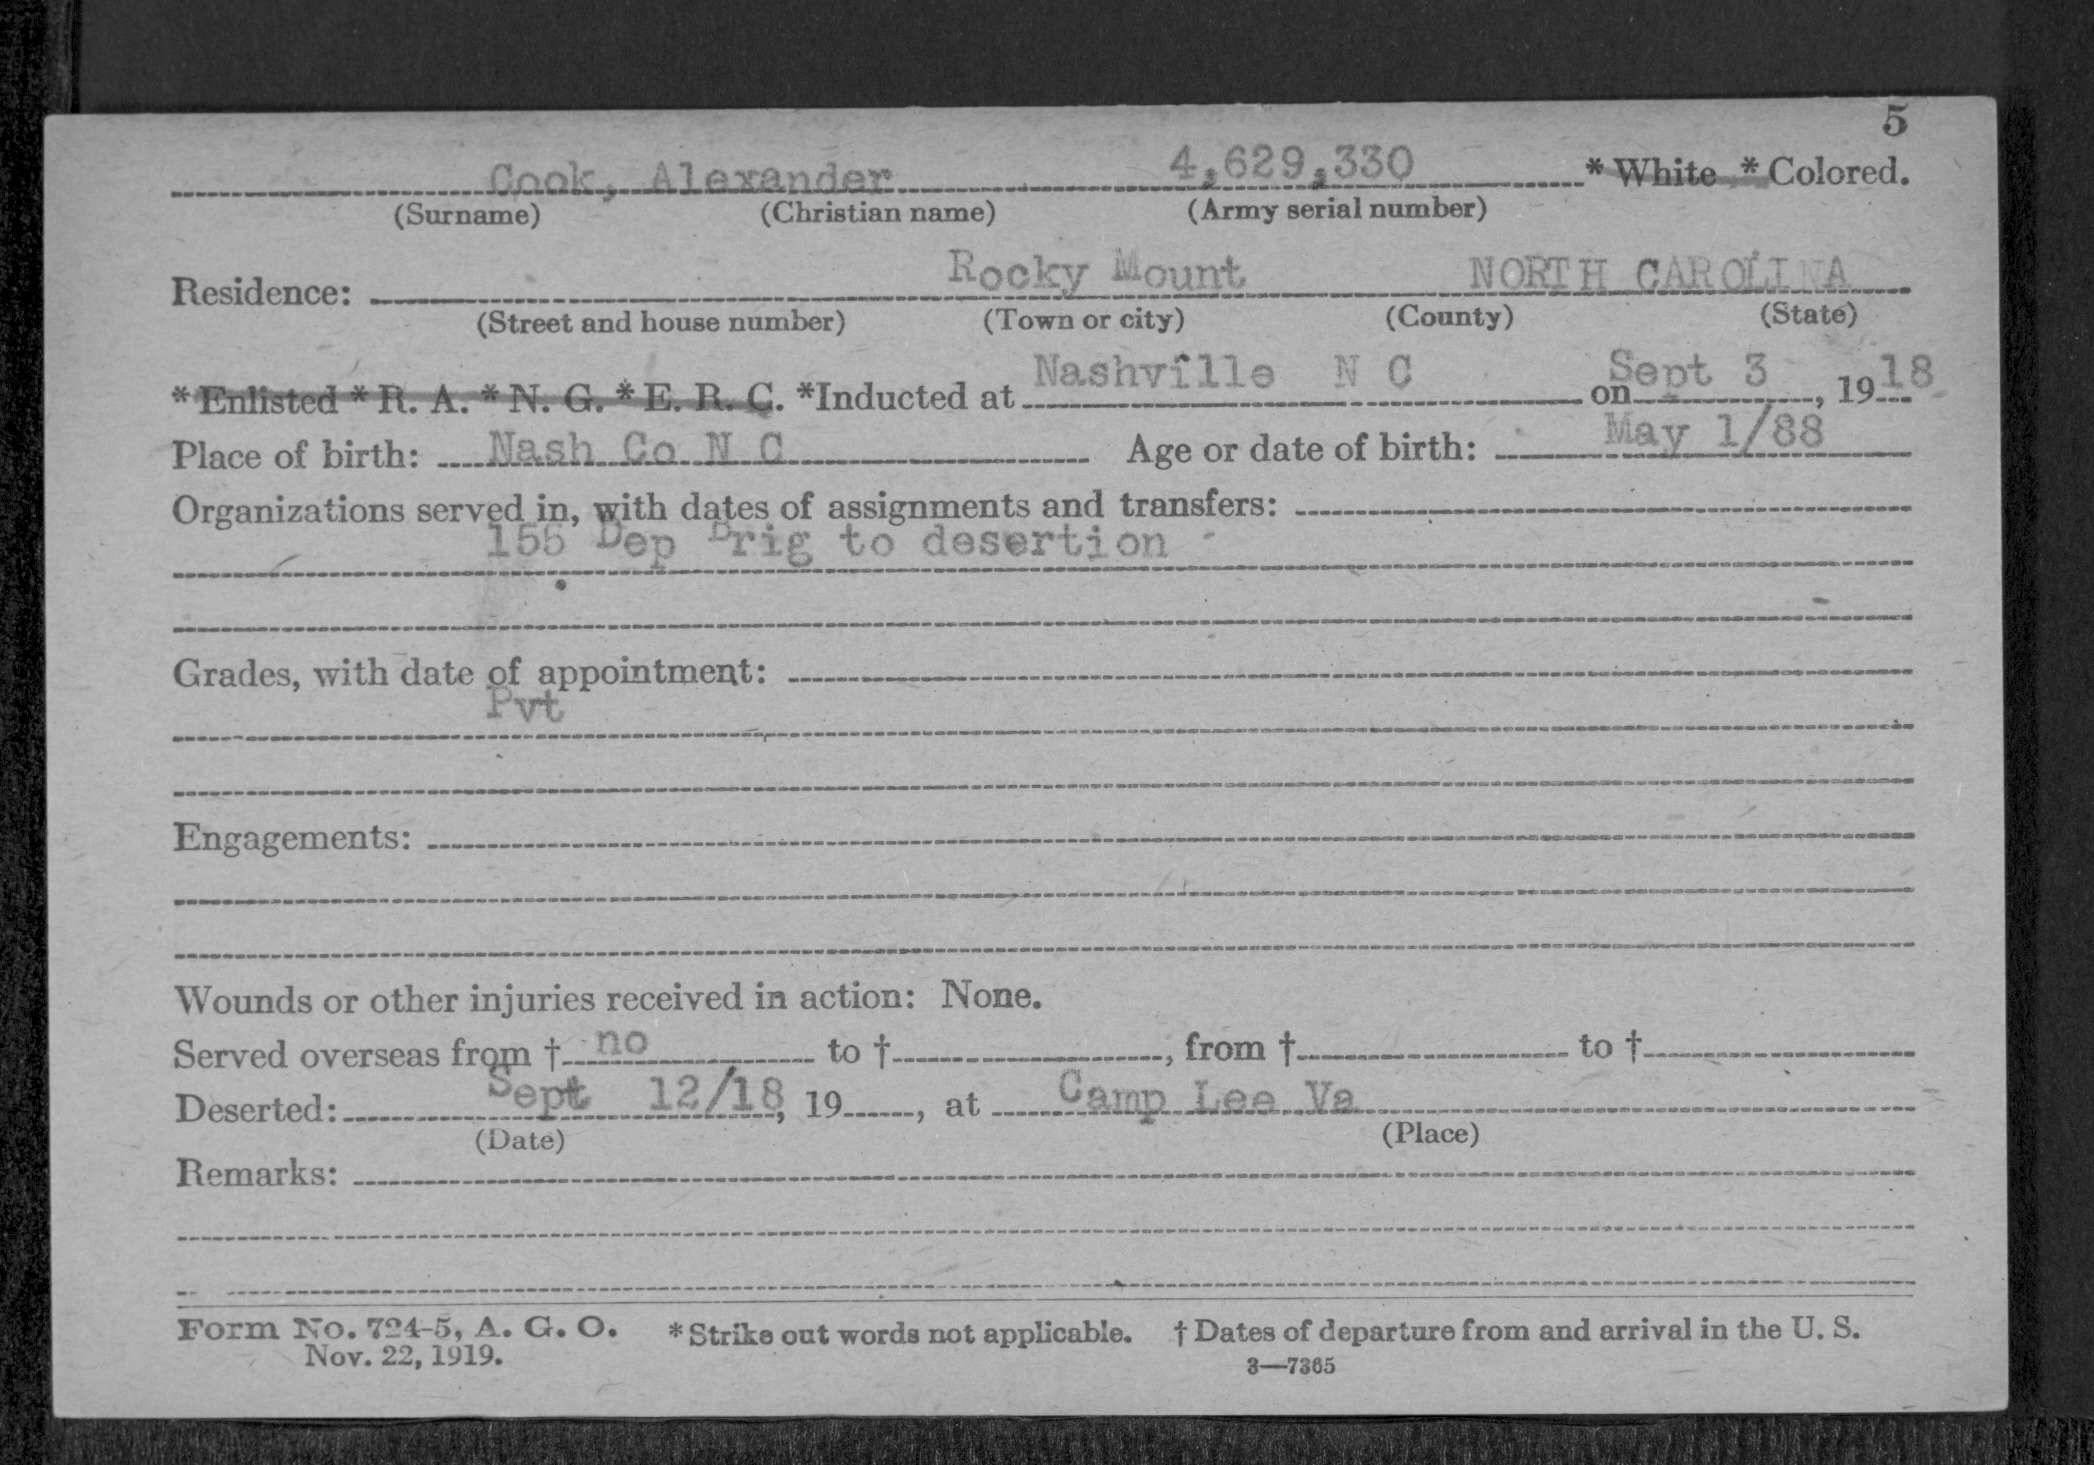 5
Cook, Alexander 4,629,330 * White * Colored.
(Surname) (Christian name) (Army serial number)
Residence: Rocky Mount NORTH CAROLINA
(Street and house number) (Town or city) (County) (State)
* Enlisted * R. A. * N. G. * E. R. C. *Inducted at Nashville N C on Sept 3, 1918
Place of birth: Nash Co N C Age or date of birth: May 1/88
Organizations served in, with dates of assignments and transfers:
155 Dep Brig to desertion
Grades, with date of appointment:
Pvt
Engagements:
Wounds or other injuries received in action: None.
Served overseas from † no to †, from † to †
Deserted: Sept 12/18, 19, at Camp Lee Va
(Date) (Place)
Remarks:
Form No. 724-5, A. G. O. * Strike out words not applicable. † Dates of departure from and arrival in the U. S.
Nov. 22, 1919. 3—7365